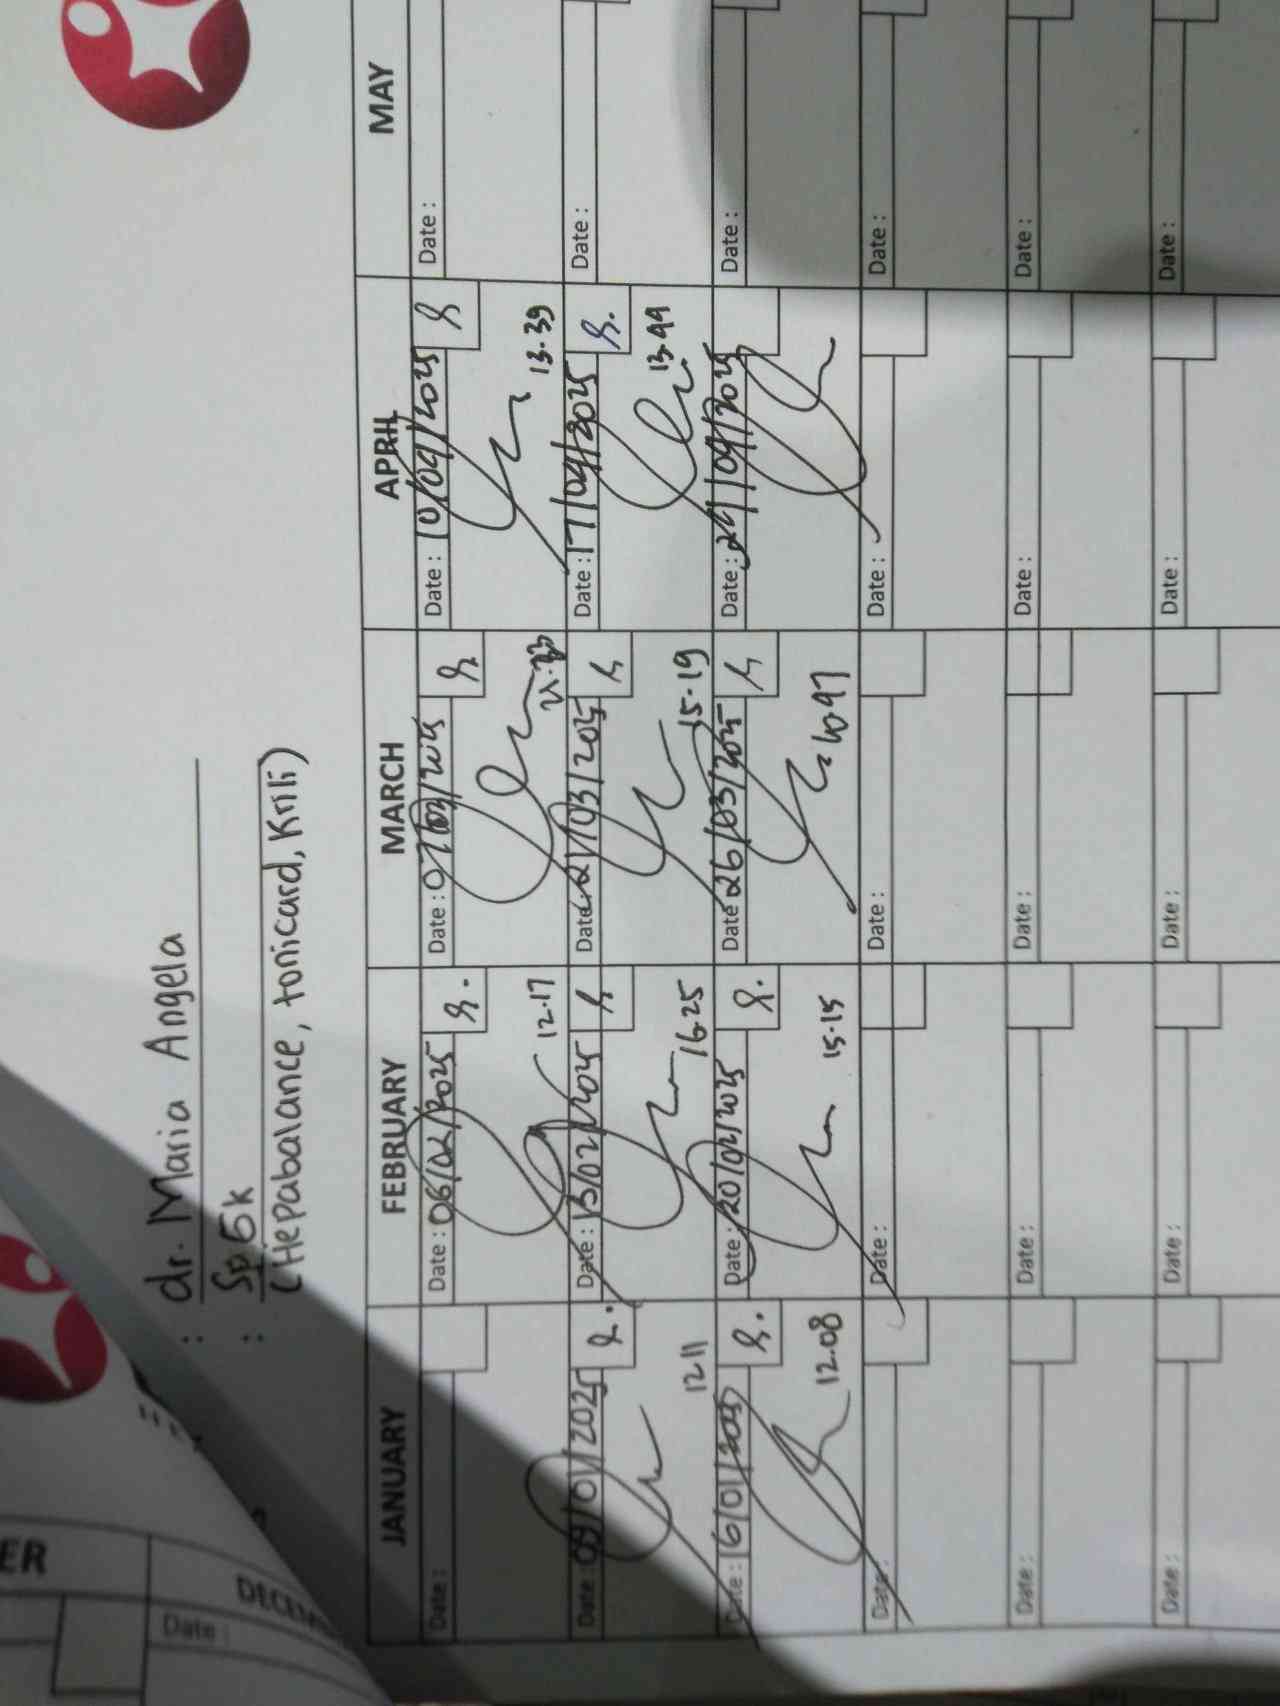 : dr. Maria Angela
: Sp6k
(Hepabalance, tonicard, Krili)
ER
DECEM
Date :
JANUARY FEBRUARY MARCH APRIL MAY
Date : Date : 06/02/2025 Date : 07/03/2025 Date : 10/04/2025 Date :
12.17 13.39
Date : 09/01/2025 Date : 13/02/2025 Date : 21/03/2025 Date : 17/04/2025 Date :
12.11 16.25 15.19 13.44
Date : 16/01/2025 Date : 20/02/2025 Date 26/03/2025 Date : 24/04/2025 Date :
12.08 15.15
Date : Date : Date : Date : Date :
Date : Date : Date : Date : Date :
Date : Date : Date : Date : Date :